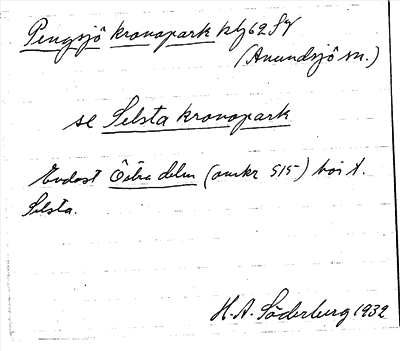 Pengsjö kronopark kbl 62 SV
(Anundsjö sn.)
se Selsta kronopark
Endast Östra delen (omkr 515) hör t.
Selsta.
H.A. Söderberg 1932